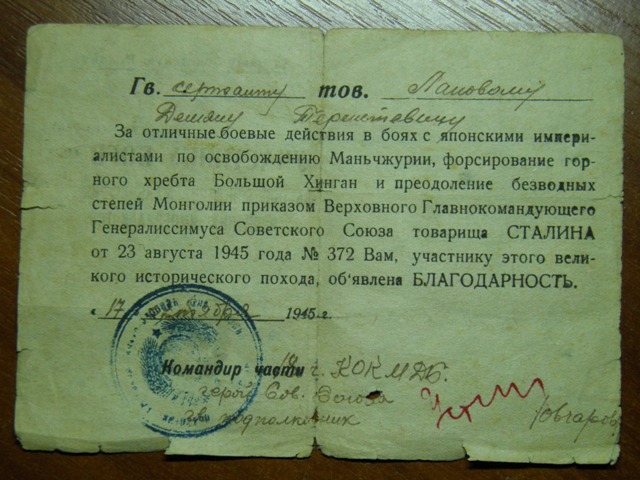 Гв. сержанту тов. Лановому
Демяну
За отличные боевые действия в боях с японскими импери-
алистами по освобождению Маньчжурии, форсирование гор-
ного хребта Большой Хинган и преодоление безводных
степей Монголии приказом Верховного Главнокомандующего
Генералиссимуса Советского Союза товарища СТАЛИНА
от 23 августа 1945 года № 372 Вам, участнику этого вели-
кого исторического похода, об'явлена БЛАГОДАРНОСТЬ.
„17 1945 г.
Командир части
герой Сов. Союза
гв. подполковник